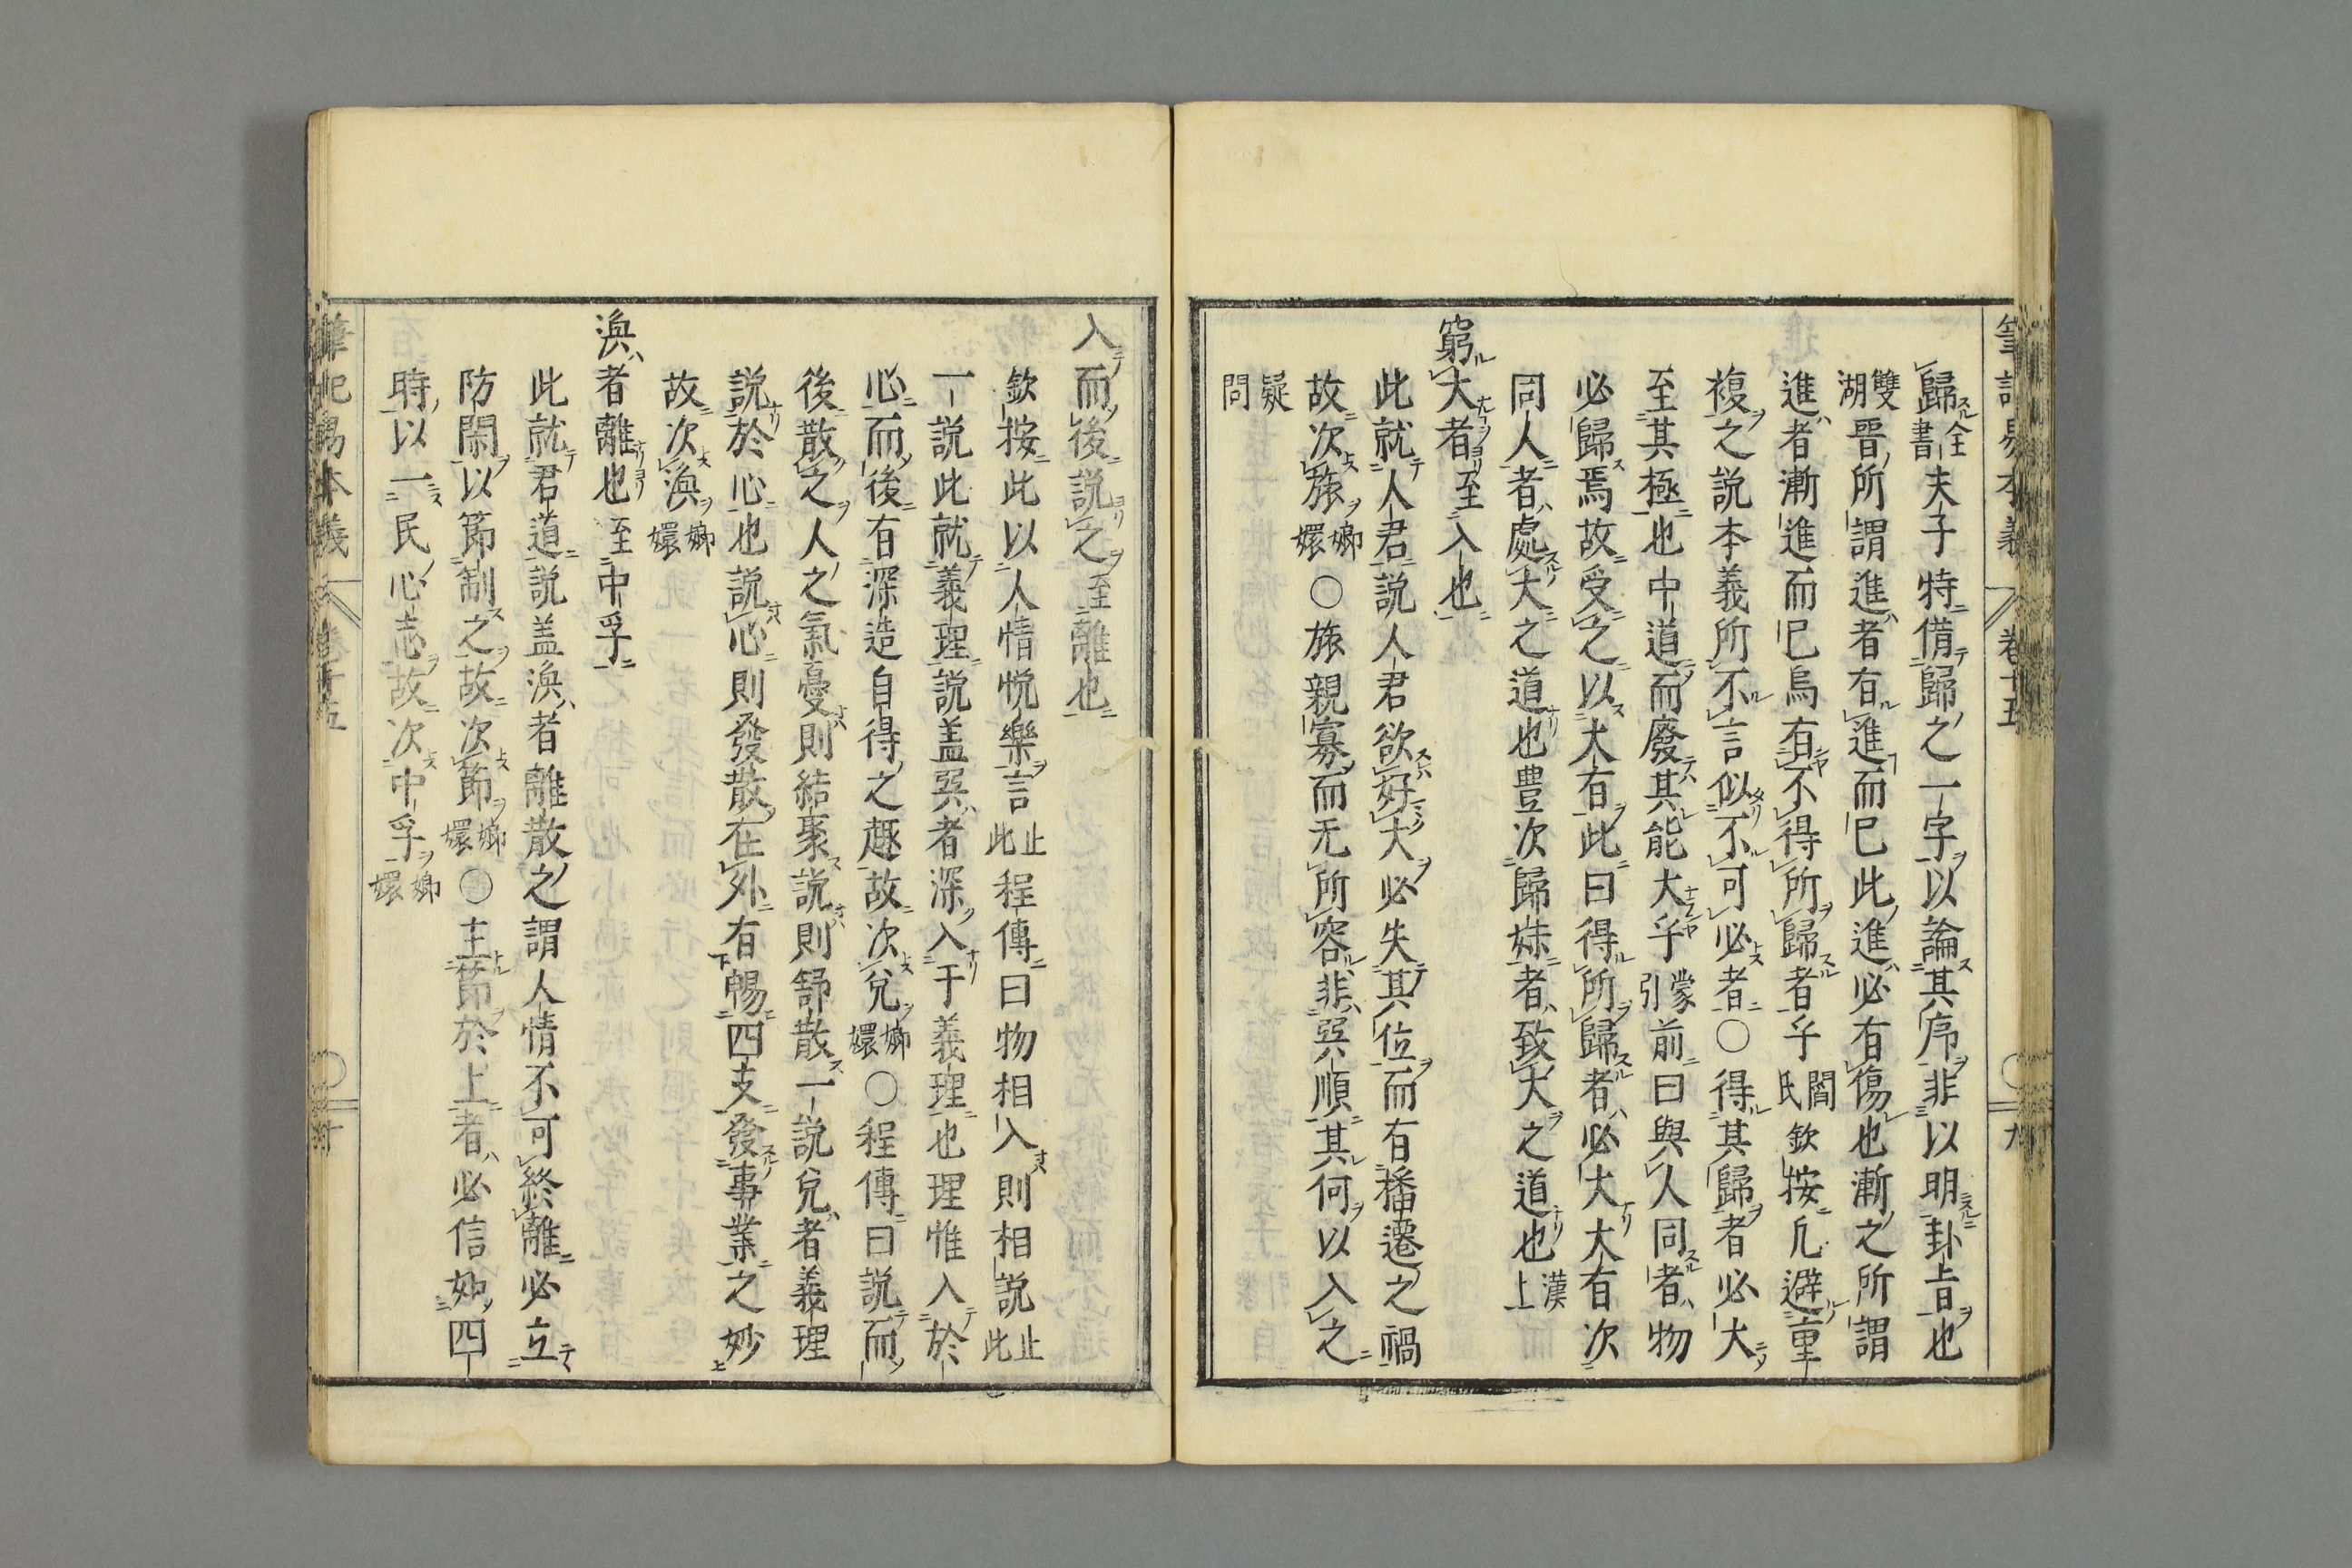 筆記易本義 卷十五 九
歸全書夫子特借歸之一字以論其序非以明卦㫖也
雙湖晋所謂進者有進而已此進必有傷也漸之所謂
進者漸進而已烏有不得所歸者乎閻氏欽按凡避重
複之說本義所不言似不可必者○得其歸者必大
至其極也中道而廢其能大乎蒙引前曰與人同者物
必歸焉故受之以大有此曰得所歸者必大大有次
同人者處大之道也豊次歸妹者致大之道也漢上
窮大者至入也
此就人君說人君欲好大必失其位而有播遷之禍
故次旅嫏嬛○旅親寡而无所容非巽順其何以入之
疑問
入而後說之至離也
欽按此以人情悅樂言止此程傳曰物相入則相說止此
一說此就義理說盖巽者深入于義理也理惟入於
心而後有深造自得之趣故次兌嫏嬛○程傳曰說而
後散之人之氣憂則結聚說則舒散一說兌者義理
說於心也說心則發散在外有暢四支發事業之妙
故次渙嫏嬛
渙者離也至中孚
此就君道說盖渙者離散之謂人情不可終離必立
防閑以節制之故次節嫏嬛○主節於上者必信如四
時以一民心志故次中孚嫏嬛
筆記易本義 卷十五 十